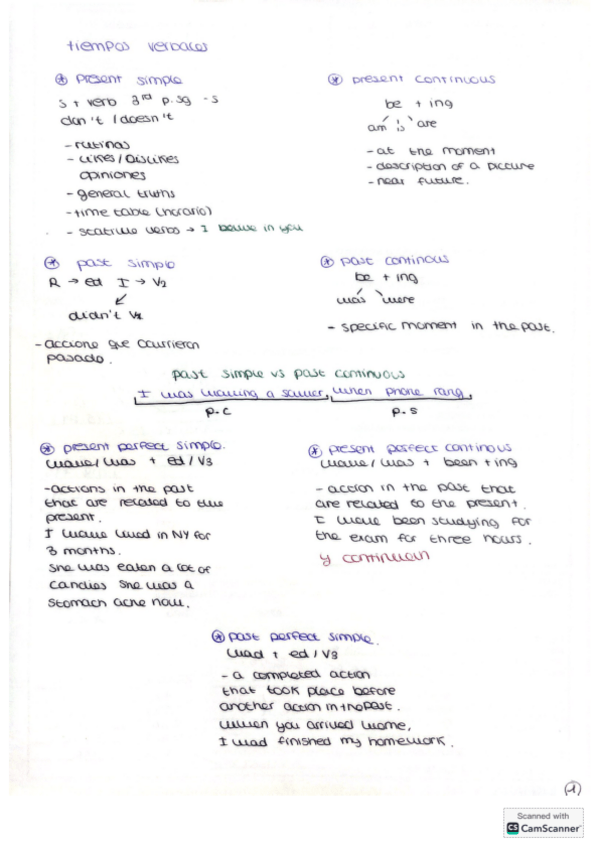 tiempos verbales
⊛ present simple
s + verb 3rd p.sg -s
don't / doesn't
- rutinas
- likes / Dislikes
opiniones
- general truths
- time table (horario)
- stative verbs → I believe in you
⊛ present continuous
be + ing
am is are
- at the moment
- description of a picture
- near future.
⊛ past simple
R → ed I → V2
didn't V1
- accione que ocurrieron
pasado.
⊛ past continous
be + ing
was were
- specific moment in the past.
past simple vs past continuous
I was having a shower, when phone rang.
p.c p.s
⊛ present perfect simple.
have / has + ed / V3
- actions in the past
that are related to the
present.
I have lived in NY for
3 months.
She has eaten a lot of
candies she has a
stomach ache now.
⊛ present perfect continous
have / has + been + ing
- action in the past that
are related to the present.
I have been studying for
the exam for three hours.
y continúan
⊛ past perfect simple.
had + ed / V3
- a completed action
that took place before
another action in the past.
When you arrived home,
I had finished my homework.
(1)
Scanned with
CS CamScanner